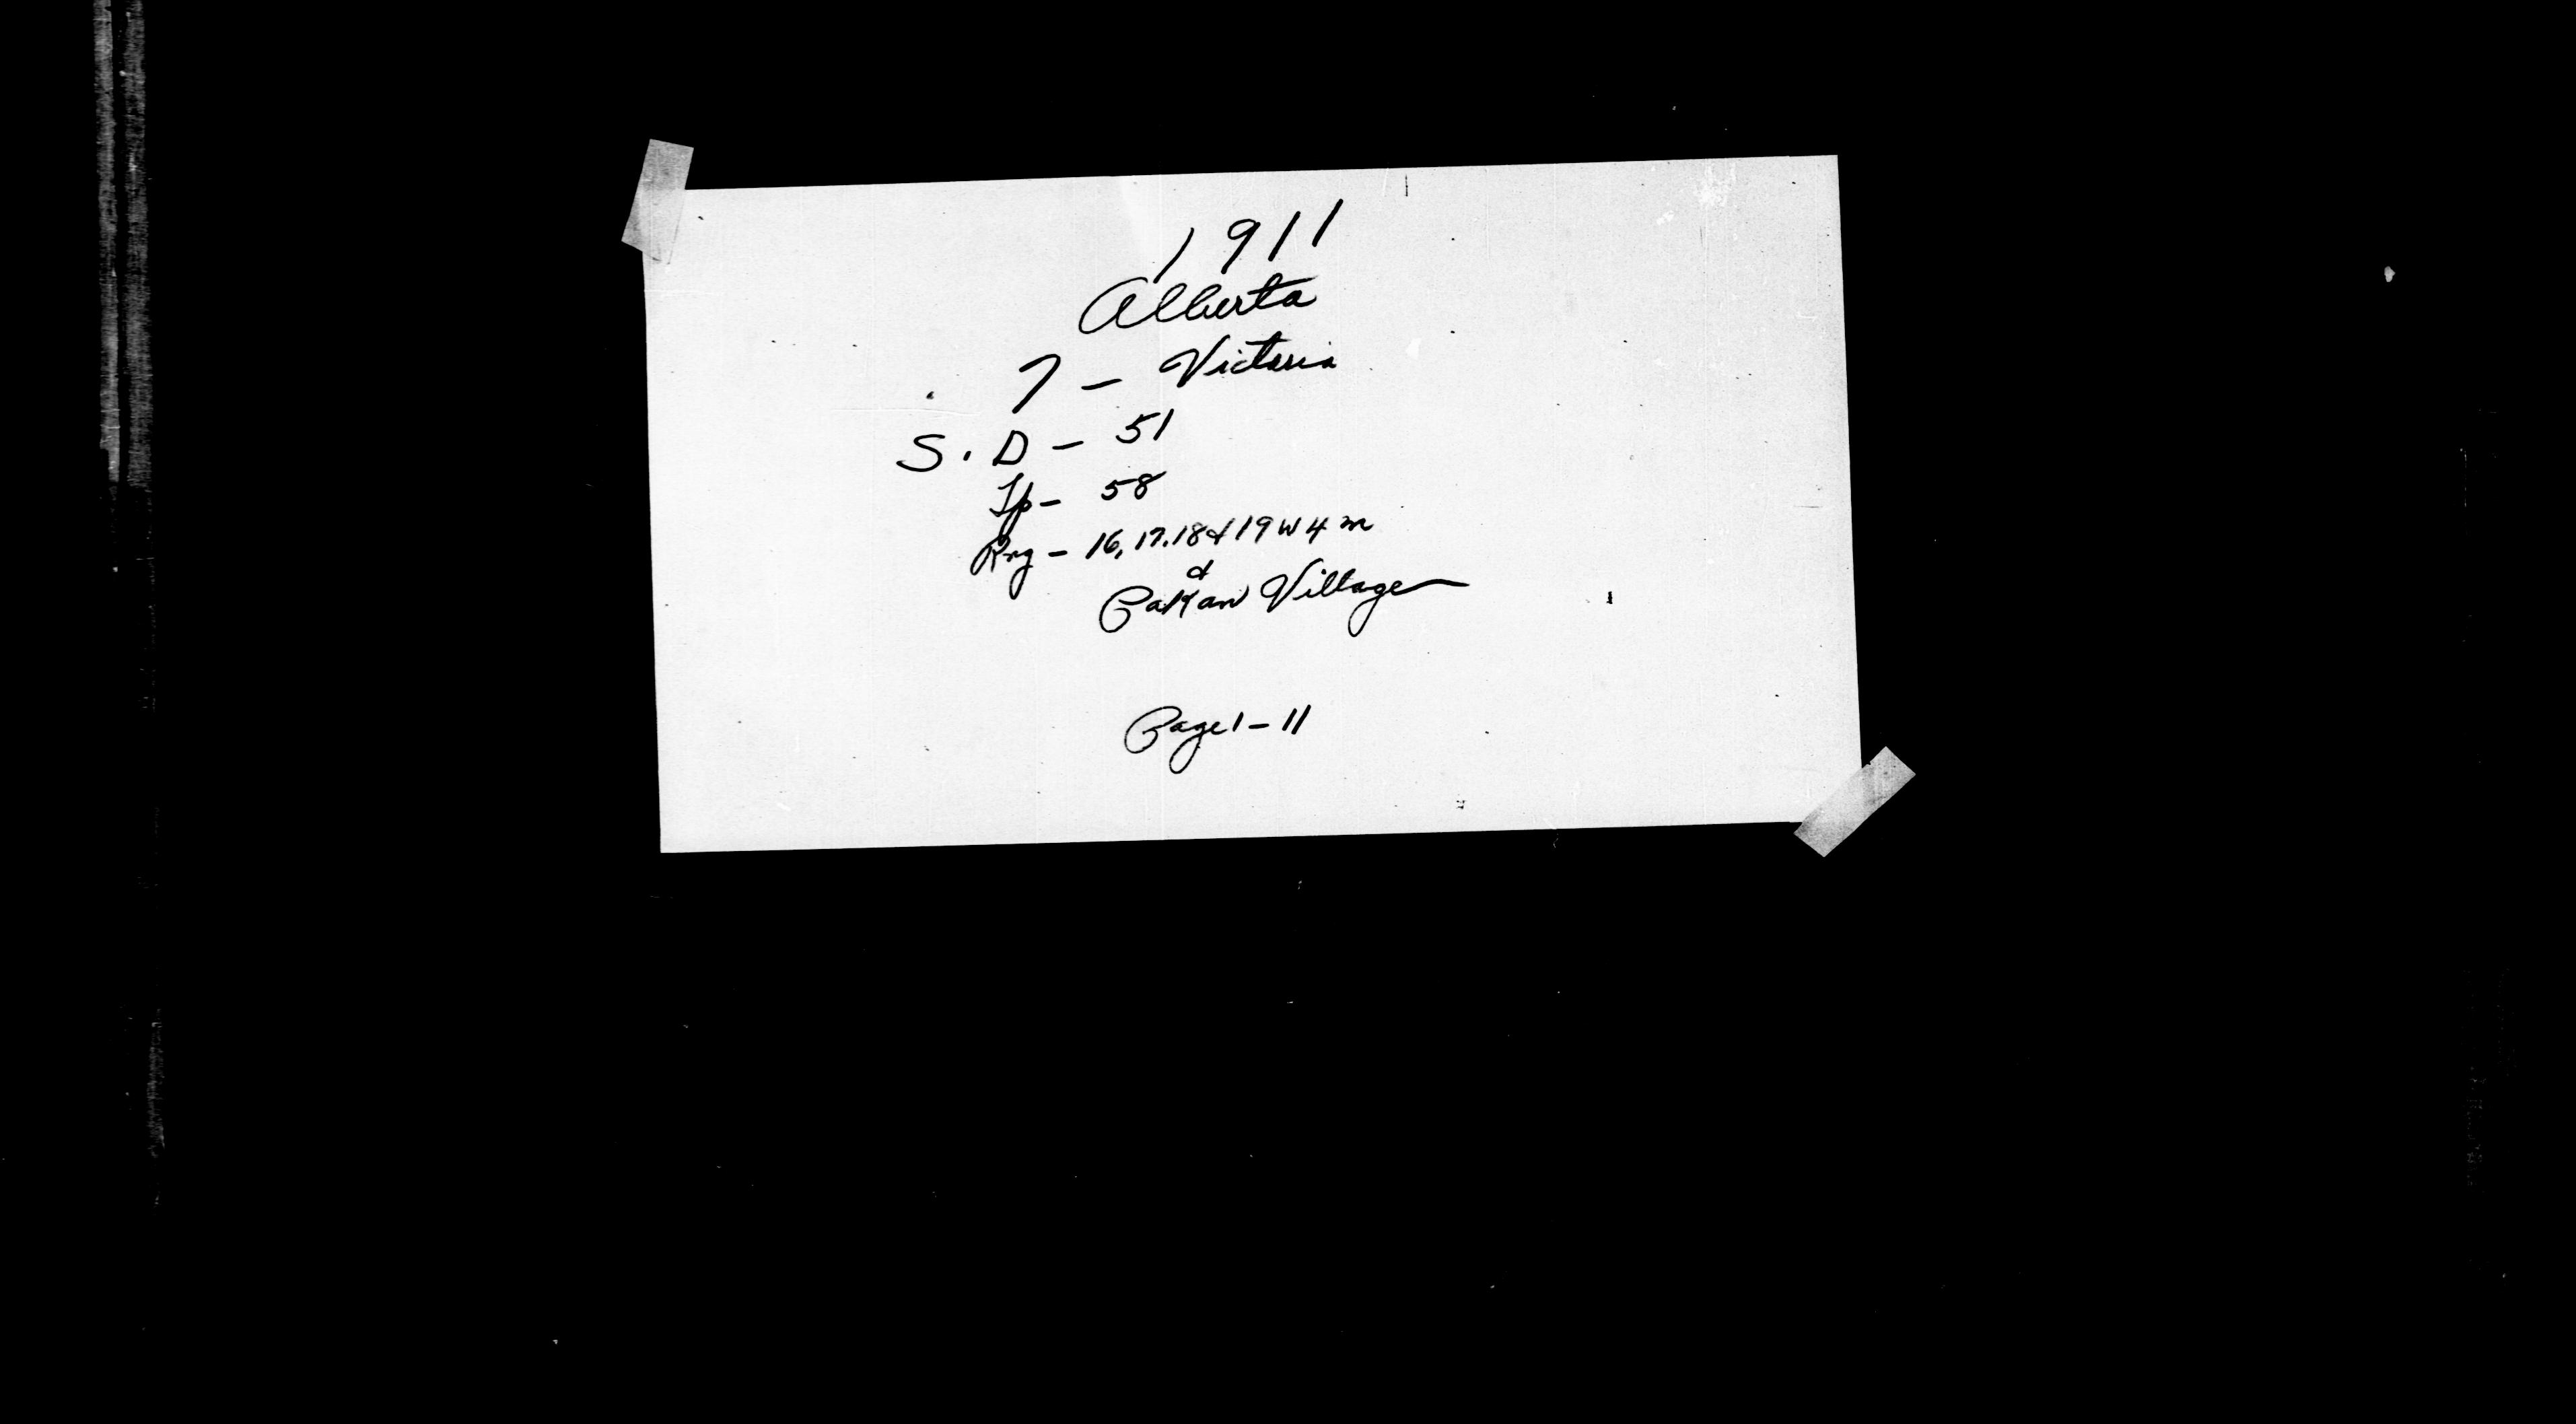 1911
Alberta
7 - Victoria
S. D - 51
Tp - 58
Rng - 16, 17. 18 & 19 W 4 m
&
Pakan Village
Page 1 - 11